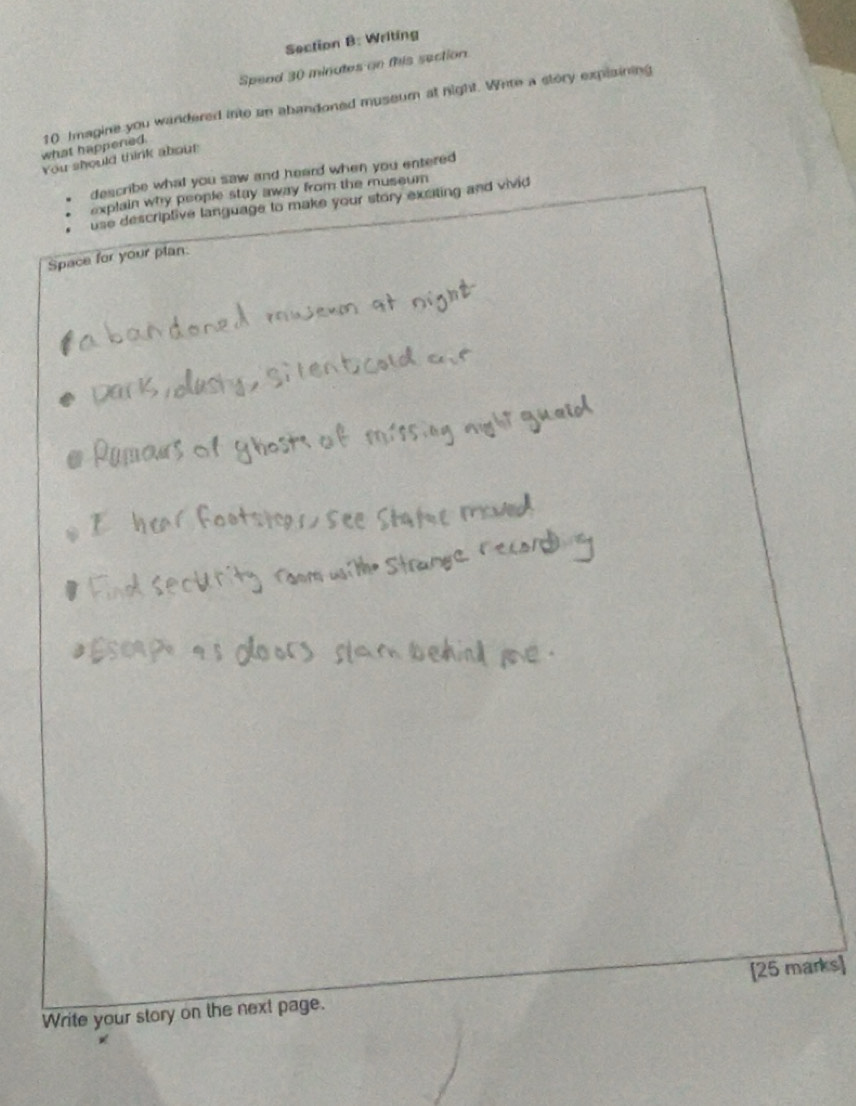 Section B: Writing
Spend 30 minutes on this section.
10 Imagine you wandered into an abandoned museum at night. Write a story explaining
what happened.
You should think about:
• describe what you saw and heard when you entered
• explain why people stay away from the museum
• use descriptive language to make your story exciting and vivid
Space for your plan:
• abandoned museum at night
• Dark, dusty, silent, cold air
• Rumours of ghosts of missing night guard
• I hear footsteps, see statue moved
• Find security room with strange recording
• Escape as doors slam behind me.
[25 marks]
Write your story on the next page.